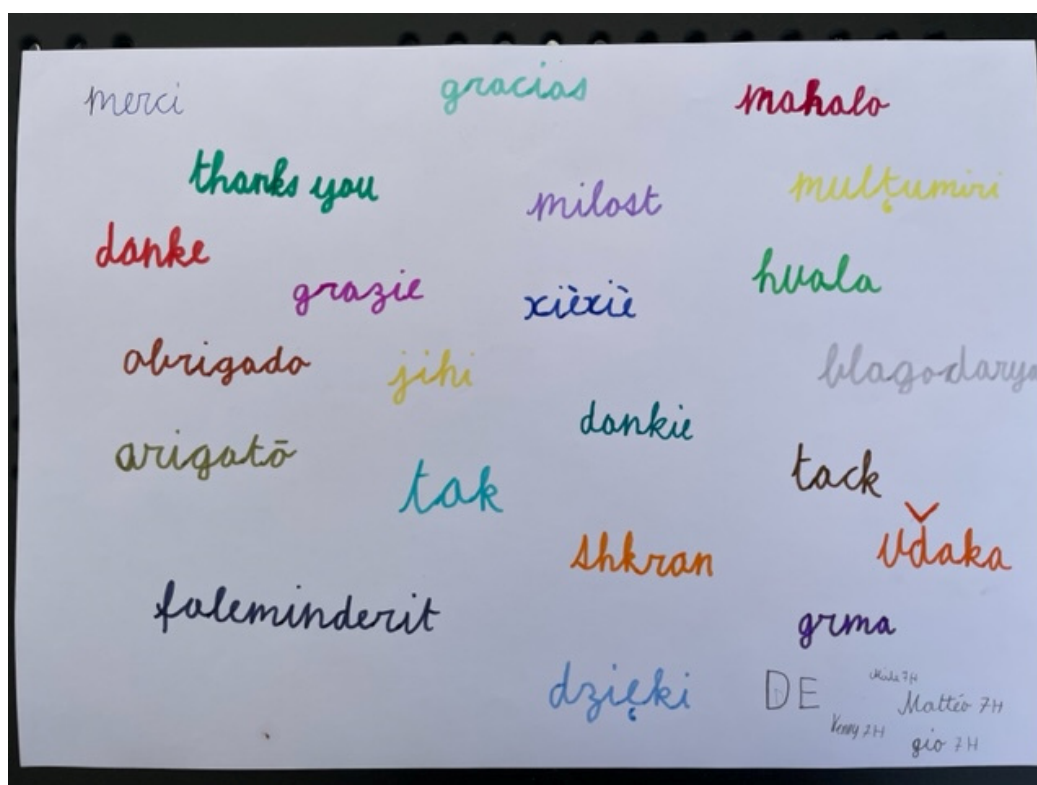 merci
gracias
mahalo
thanks you
milost
mulţumiri
danke
grazie
xièxiè
hvala
obrigado
jihi
blagodarya
dankie
arigatō
tak
tack
shkran
vďaka
faleminderit
grma
dzięki
DE
Mattéo 7H
Kenny 7H
gio 7H